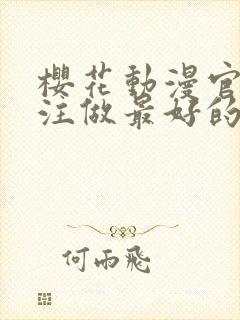 櫻花動漫官
注做最好的
何雨飛